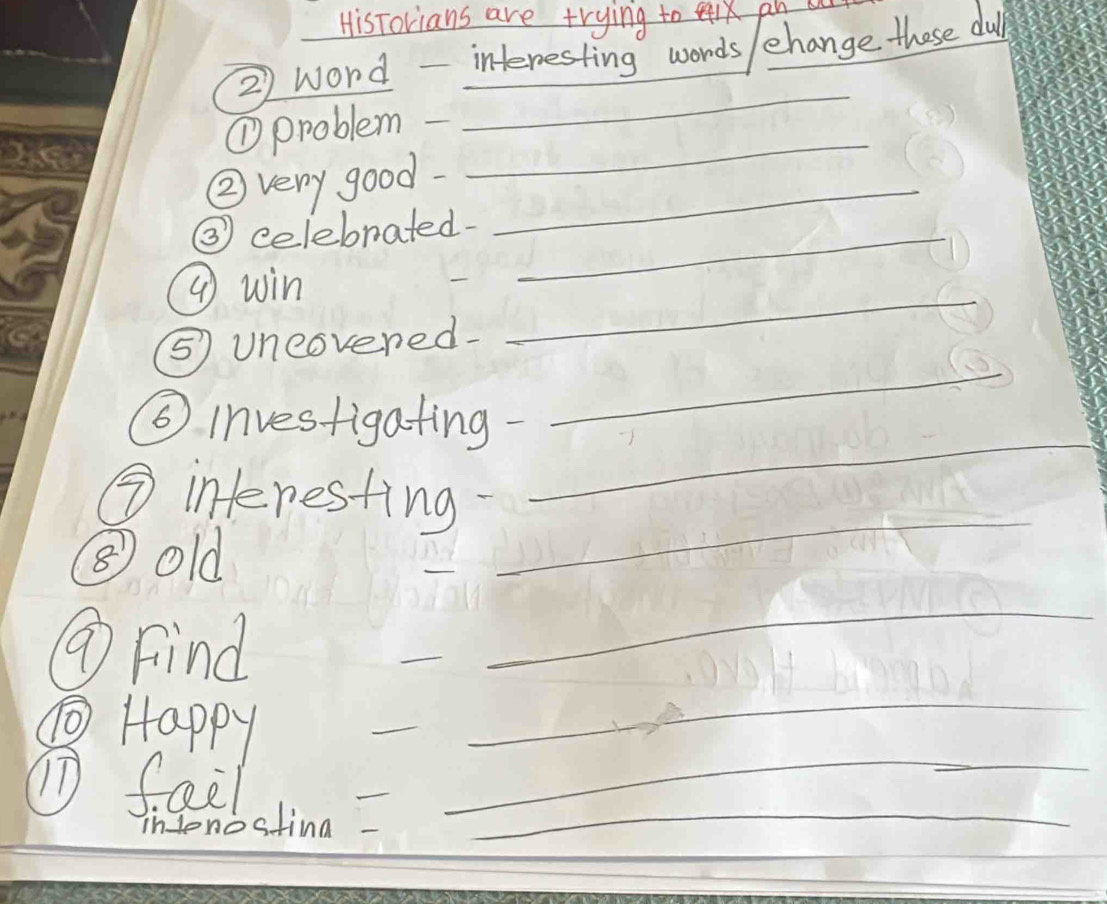 HisTorians are trying to
② word - interesting words/change these dull
① problem -
② very good -
③ celebrated -
④ win -
⑤ uncovered -
⑥ investigating -
⑦ interesting -
⑧ old =
⑨ Find -
⑩ Happy -
⑪ fail -
interesting -